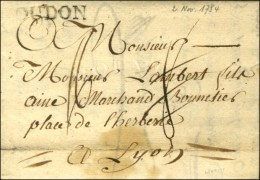 OUDON
2 Nov. 1784
Monsieur
Monsieur Lambert fils
aine Marchand Bonnetier
place de l'herberie
A Lyon